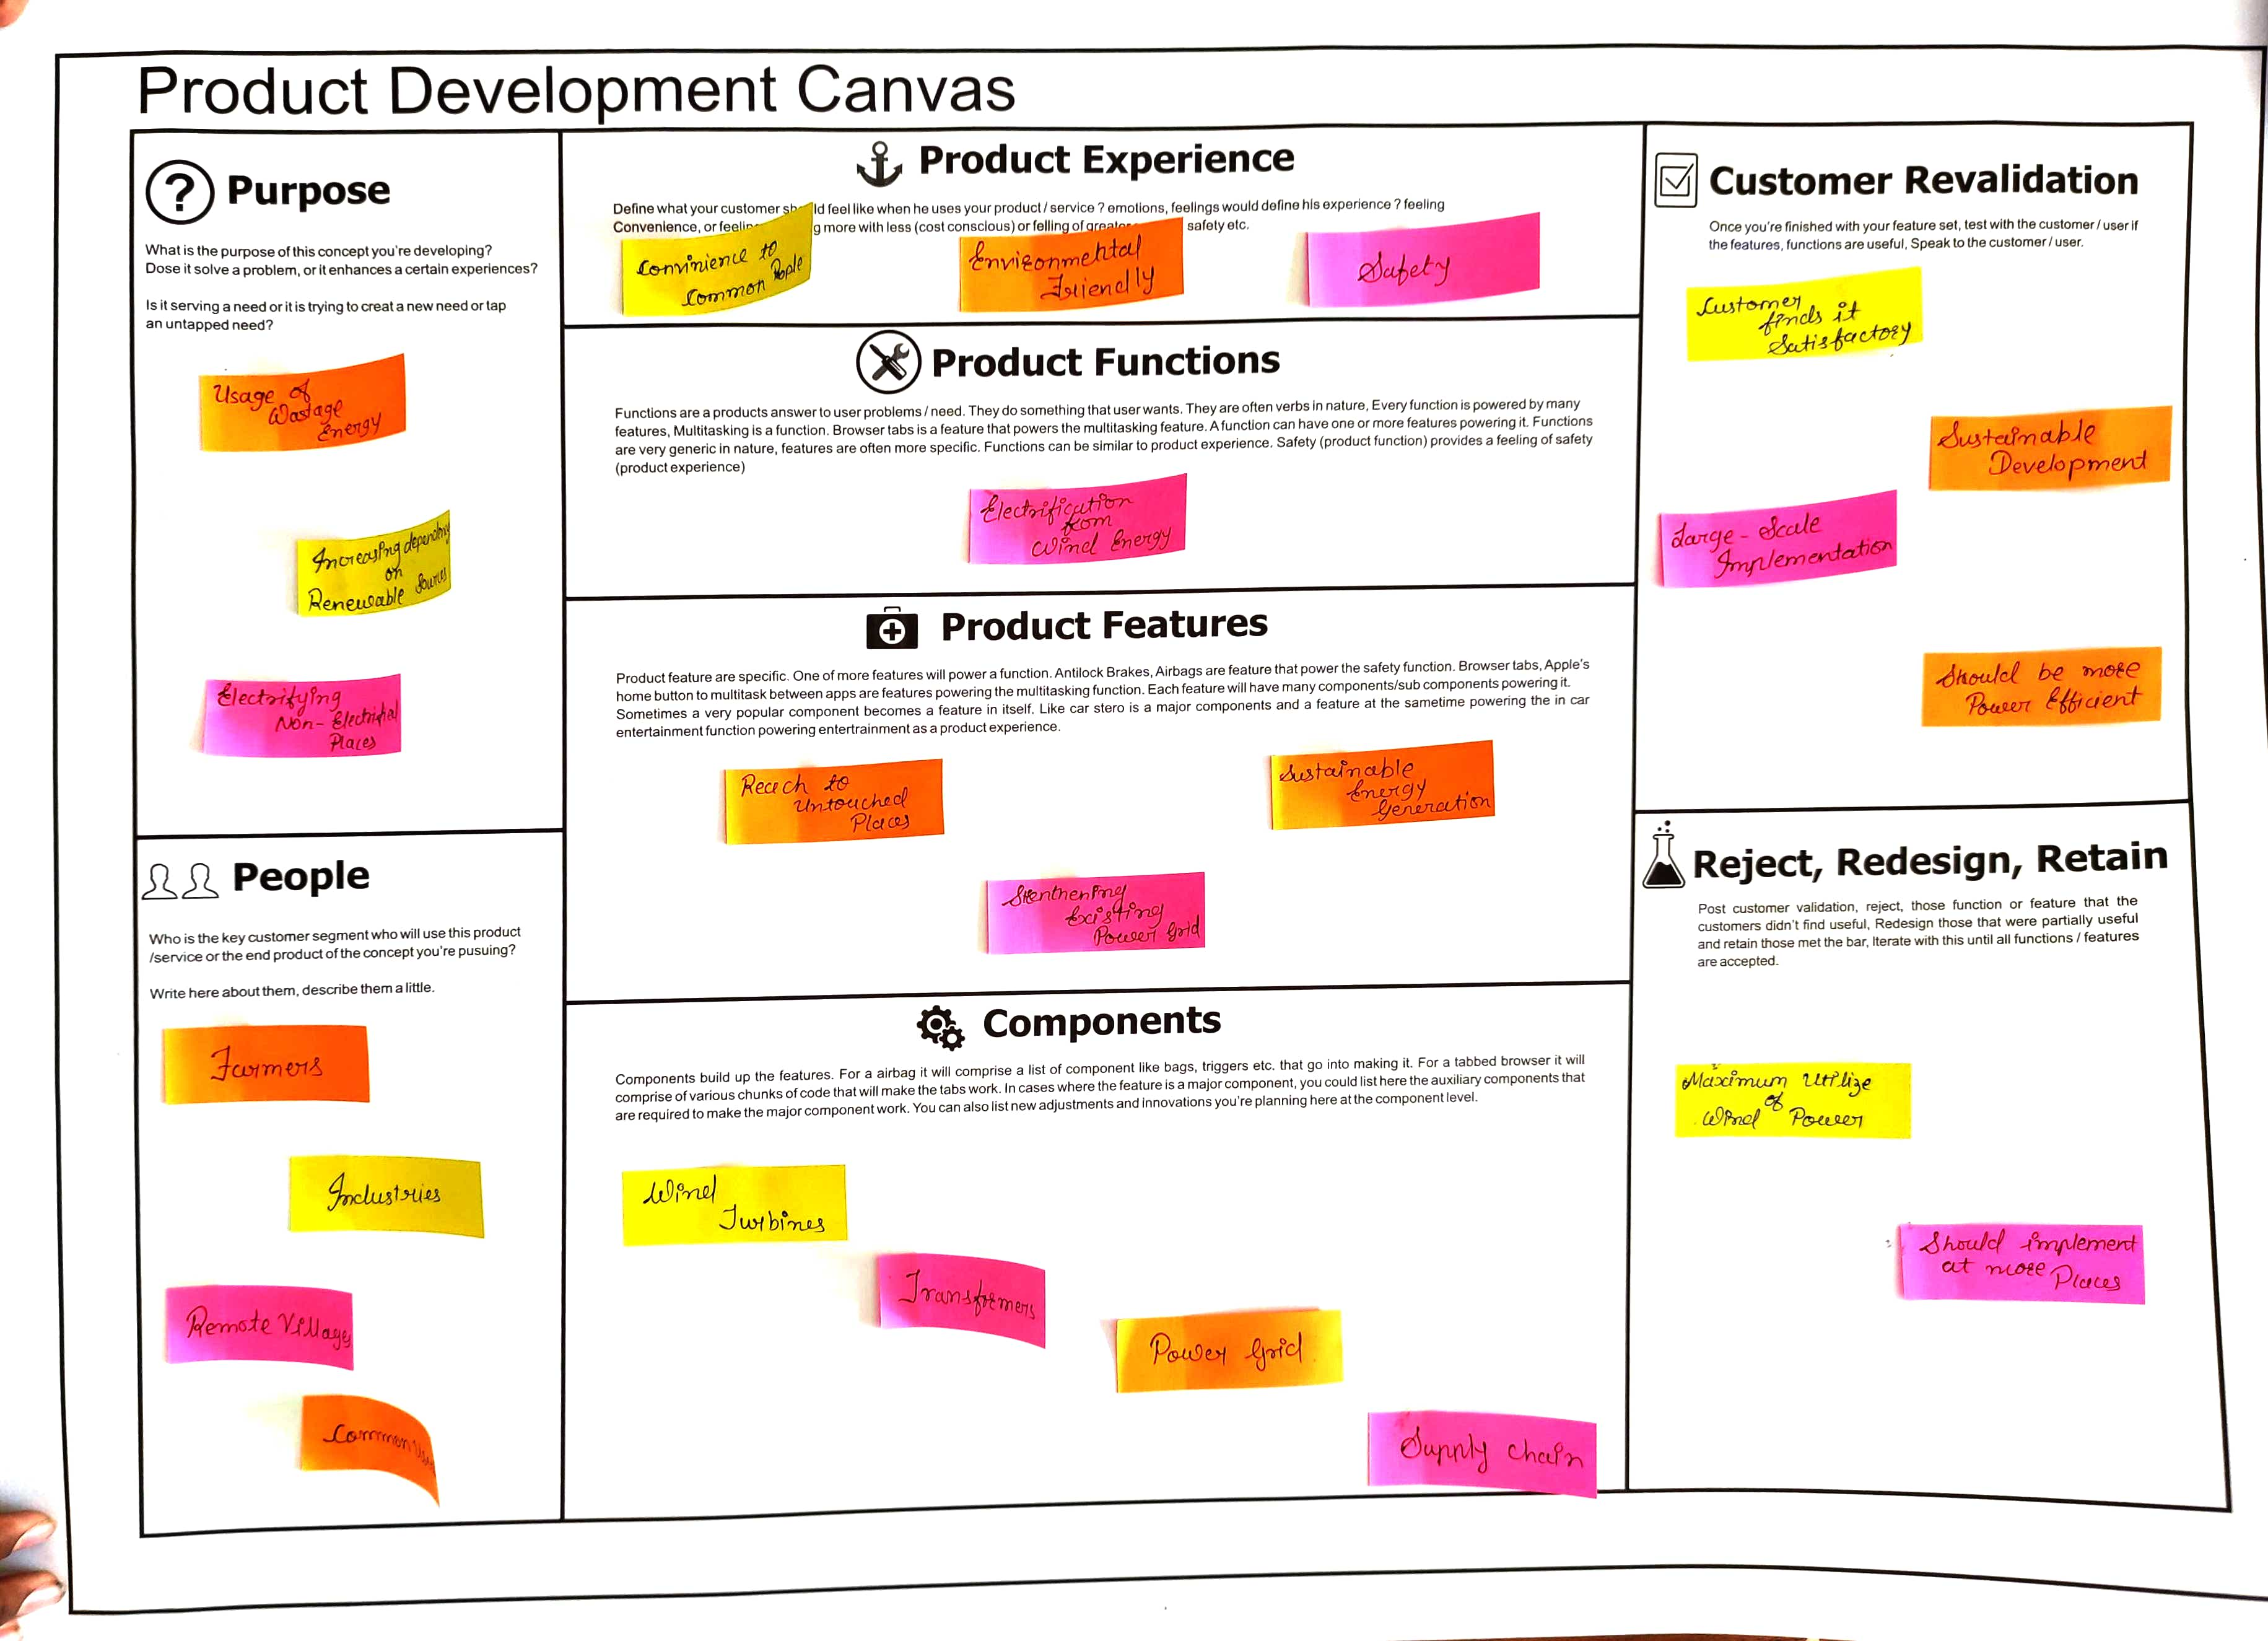 Product Development Canvas
Purpose
What is the purpose of this concept you're developing?
Dose it solve a problem, or it enhances a certain experiences?
Is it serving a need or it is trying to creat a new need or tap
an untapped need?
Usage of
Wastage
Energy
Increasing depending
on
Renewable Sources
Electrifying
Non-Electrifial
Places
People
Who is the key customer segment who will use this product
/service or the end product of the concept you're pusuing?
Write here about them, describe them a little.
Farmers
Industries
Remote Villages
Common
Product Experience
Define what your customer should feel like when he uses your product / service ? emotions, feelings would define his experience ? feeling
Convenience, or feeling more with less (cost conscious) or felling of greater safety etc.
Convinience to
Common People
Environmental
Friendly
Safety
Product Functions
Functions are a products answer to user problems / need. They do something that user wants. They are often verbs in nature, Every function is powered by many
features, Multitasking is a function. Browser tabs is a feature that powers the multitasking feature. A function can have one or more features powering it. Functions
are very generic in nature, features are often more specific. Functions can be similar to product experience. Safety (product function) provides a feeling of safety
(product experience)
Electrification
from
Wind Energy
Product Features
Product feature are specific. One of more features will power a function. Antilock Brakes, Airbags are feature that power the safety function. Browser tabs, Apple's
home button to multitask between apps are features powering the multitasking function. Each feature will have many components/sub components powering it.
Sometimes a very popular component becomes a feature in itself. Like car stero is a major components and a feature at the sametime powering the in car
entertainment function powering entertrainment as a product experience.
Reach to
Untouched
Places
Sustainable
Energy
Generation
Stenthening
Existing
Power Grid
Components
Components build up the features. For a airbag it will comprise a list of component like bags, triggers etc. that go into making it. For a tabbed browser it will
comprise of various chunks of code that will make the tabs work. In cases where the feature is a major component, you could list here the auxiliary components that
are required to make the major component work. You can also list new adjustments and innovations you're planning here at the component level.
Wind
Turbines
Transformers
Power Grid
Supply chain
Customer Revalidation
Once you're finished with your feature set, test with the customer / user if
the features, functions are useful, Speak to the customer / user.
Customer
finds it
Satisfactory
Sustainable
Development
Large-Scale
Implementation
Should be more
Power Efficient
Reject, Redesign, Retain
Post customer validation, reject, those function or feature that the
customers didn't find useful, Redesign those that were partially useful
and retain those met the bar, Iterate with this until all functions / features
are accepted.
Maximum Utilize
of
Wind Power
Should implement
at more Places